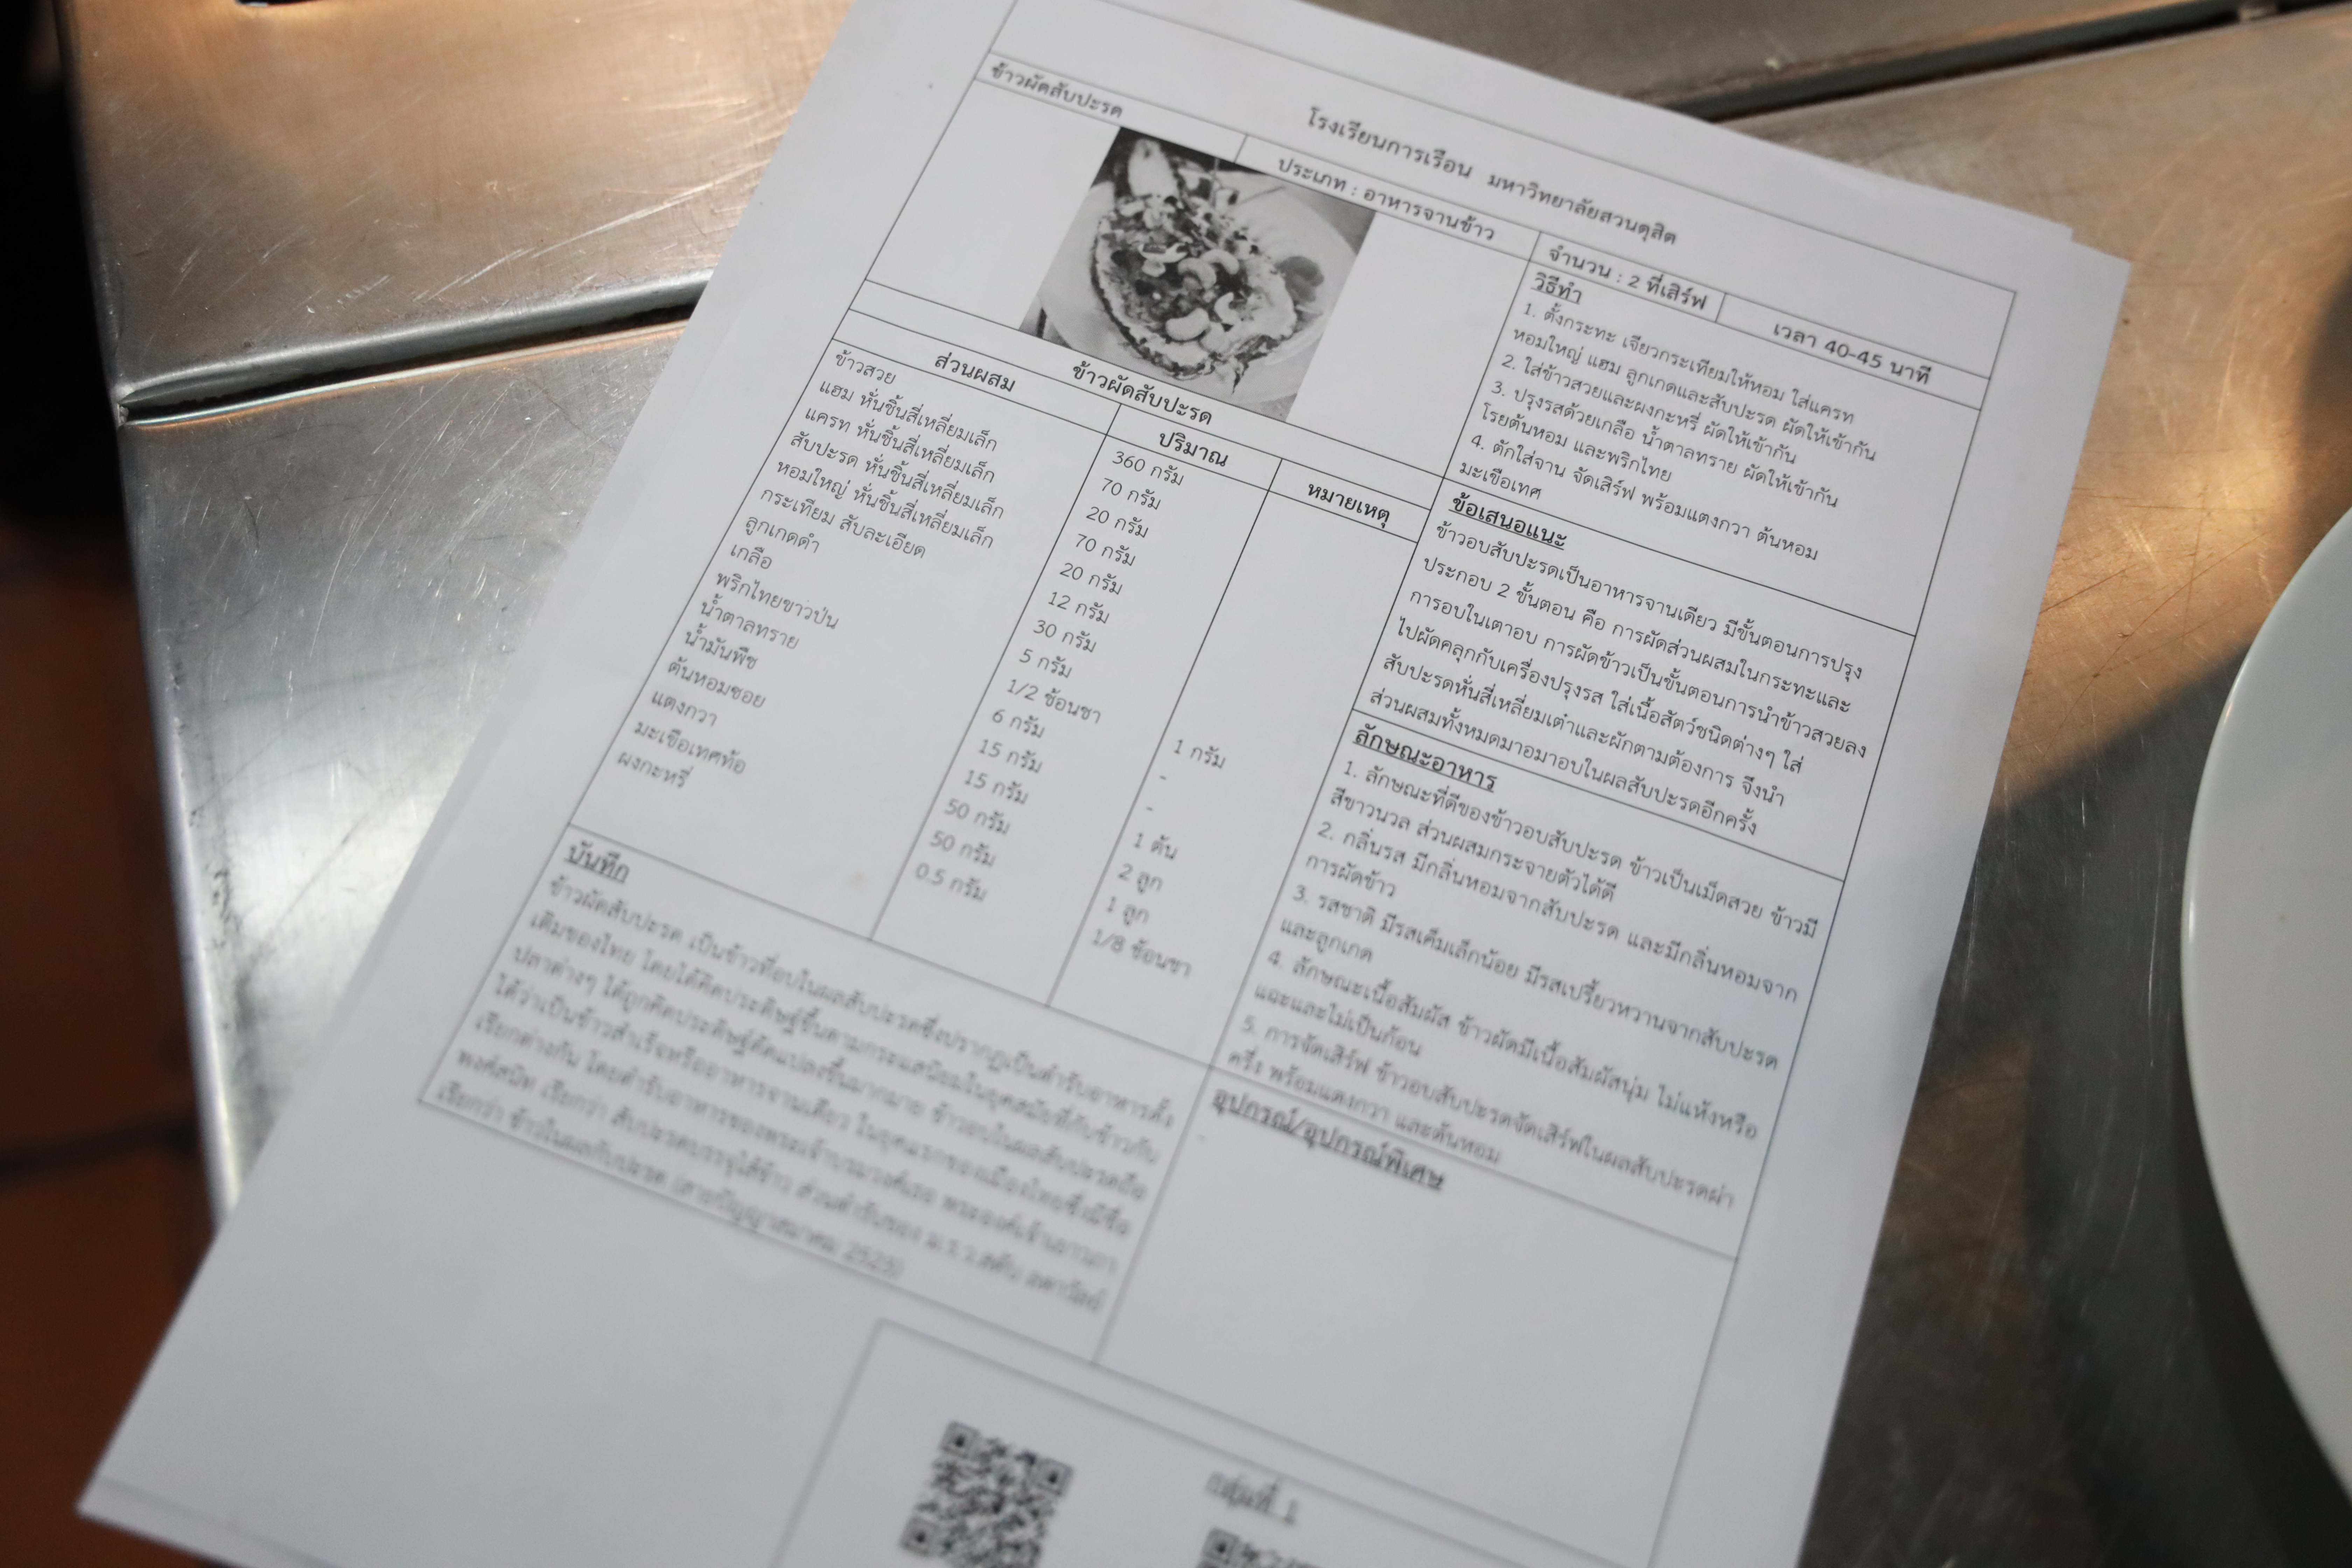 โรงเรียนการเรือน มหาวิทยาลัยสวนดุสิต
ข้าวผัดสับปะรด
ประเภท : อาหารจานข้าว
จำนวน : 2 ที่เสิร์ฟ
เวลา 40-45 นาที
ข้าวผัดสับปะรด
ส่วนผสม ปริมาณ หมายเหตุ
ข้าวสวย 360 กรัม
แฮม หั่นชิ้นสี่เหลี่ยมเล็ก 70 กรัม
แครท หั่นชิ้นสี่เหลี่ยมเล็ก 20 กรัม
สับปะรด หั่นชิ้นสี่เหลี่ยมเล็ก 70 กรัม
หอมใหญ่ หั่นชิ้นสี่เหลี่ยมเล็ก 20 กรัม
กระเทียม สับละเอียด 12 กรัม
ลูกเกดดำ 30 กรัม
เกลือ 5 กรัม
พริกไทยขาวป่น 1/2 ช้อนชา 1 กรัม
น้ำตาลทราย 6 กรัม -
น้ำมันพืช 15 กรัม -
ต้นหอมซอย 15 กรัม 1 ต้น
แตงกวา 50 กรัม 2 ลูก
มะเขือเทศท้อ 50 กรัม 1 ลูก
ผงกะหรี่ 0.5 กรัม 1/8 ช้อนชา
วิธีทำ
1. ตั้งกระทะ เจียวกระเทียมให้หอม ใส่แครท
หอมใหญ่ แฮม ลูกเกดและสับปะรด ผัดให้เข้ากัน
2. ใส่ข้าวสวยและผงกะหรี่ ผัดให้เข้ากัน
3. ปรุงรสด้วยเกลือ น้ำตาลทราย ผัดให้เข้ากัน
โรยต้นหอม และพริกไทย
4. ตักใส่จาน จัดเสิร์ฟ พร้อมแตงกวา ต้นหอม
มะเขือเทศ
ข้อเสนอแนะ
ข้าวอบสับปะรดเป็นอาหารจานเดียว มีขั้นตอนการปรุง
ประกอบ 2 ขั้นตอน คือ การผัดส่วนผสมในกระทะและ
การอบในเตาอบ การผัดข้าวเป็นขั้นตอนการนำข้าวสวยลง
ไปผัดคลุกกับเครื่องปรุงรส ใส่เนื้อสัตว์ชนิดต่างๆ ใส่
สับปะรดหั่นสี่เหลี่ยมเต๋าและผักตามต้องการ จึงนำ
ส่วนผสมทั้งหมดมาอมาอบในผลสับปะรดอีกครั้ง
ลักษณะอาหาร
1. ลักษณะที่ดีของข้าวอบสับปะรด ข้าวเป็นเม็ดสวย ข้าวมี
สีขาวนวล ส่วนผสมกระจายตัวได้ดี
2. กลิ่นรส มีกลิ่นหอมจากสับปะรด และมีกลิ่นหอมจาก
การผัดข้าว
3. รสชาติ มีรสเค็มเล็กน้อย มีรสเปรี้ยวหวานจากสับปะรด
และลูกเกด
4. ลักษณะเนื้อสัมผัส ข้าวผัดมีเนื้อสัมผัสนุ่ม ไม่แห้งหรือ
แฉะและไม่เป็นก้อน
5. การจัดเสิร์ฟ ข้าวอบสับปะรดจัดเสิร์ฟในผลสับปะรดผ่า
ครึ่ง พร้อมแตงกวา และต้นหอม
อุปกรณ์/อุปกรณ์พิเศษ
บันทึก
ข้าวผัดสับปะรด เป็นข้าวที่อบในผลสับปะรดซึ่งปรากฏเป็นตำรับอาหารดั้ง
เดิมของไทย โดยได้คิดประดิษฐ์ขึ้นตามกระแสนิยมในยุคสมัยที่กับข้าวกับ
ปลาต่างๆ ได้ถูกคิดประดิษฐ์ดัดแปลงขึ้นมากมาย ข้าวอบในผลสับปะรดถือ
ได้ว่าเป็นข้าวสำเร็จหรืออาหารจานเดียว ในยุคแรกของเมืองไทยซึ่งมีชื่อ
เรียกต่างกัน โดยตำรับอาหารของพระเจ้าบรมวงศ์เธอ พระองค์เจ้าเยาวภา
พงศ์สนิท เรียกว่า สับปะรดบรรจุไส้ข้าว ส่วนตำรับของ ม.ร.ว.
เรียกว่า ข้าวในผลสับปะรด 2525)
กลุ่มที่ 1